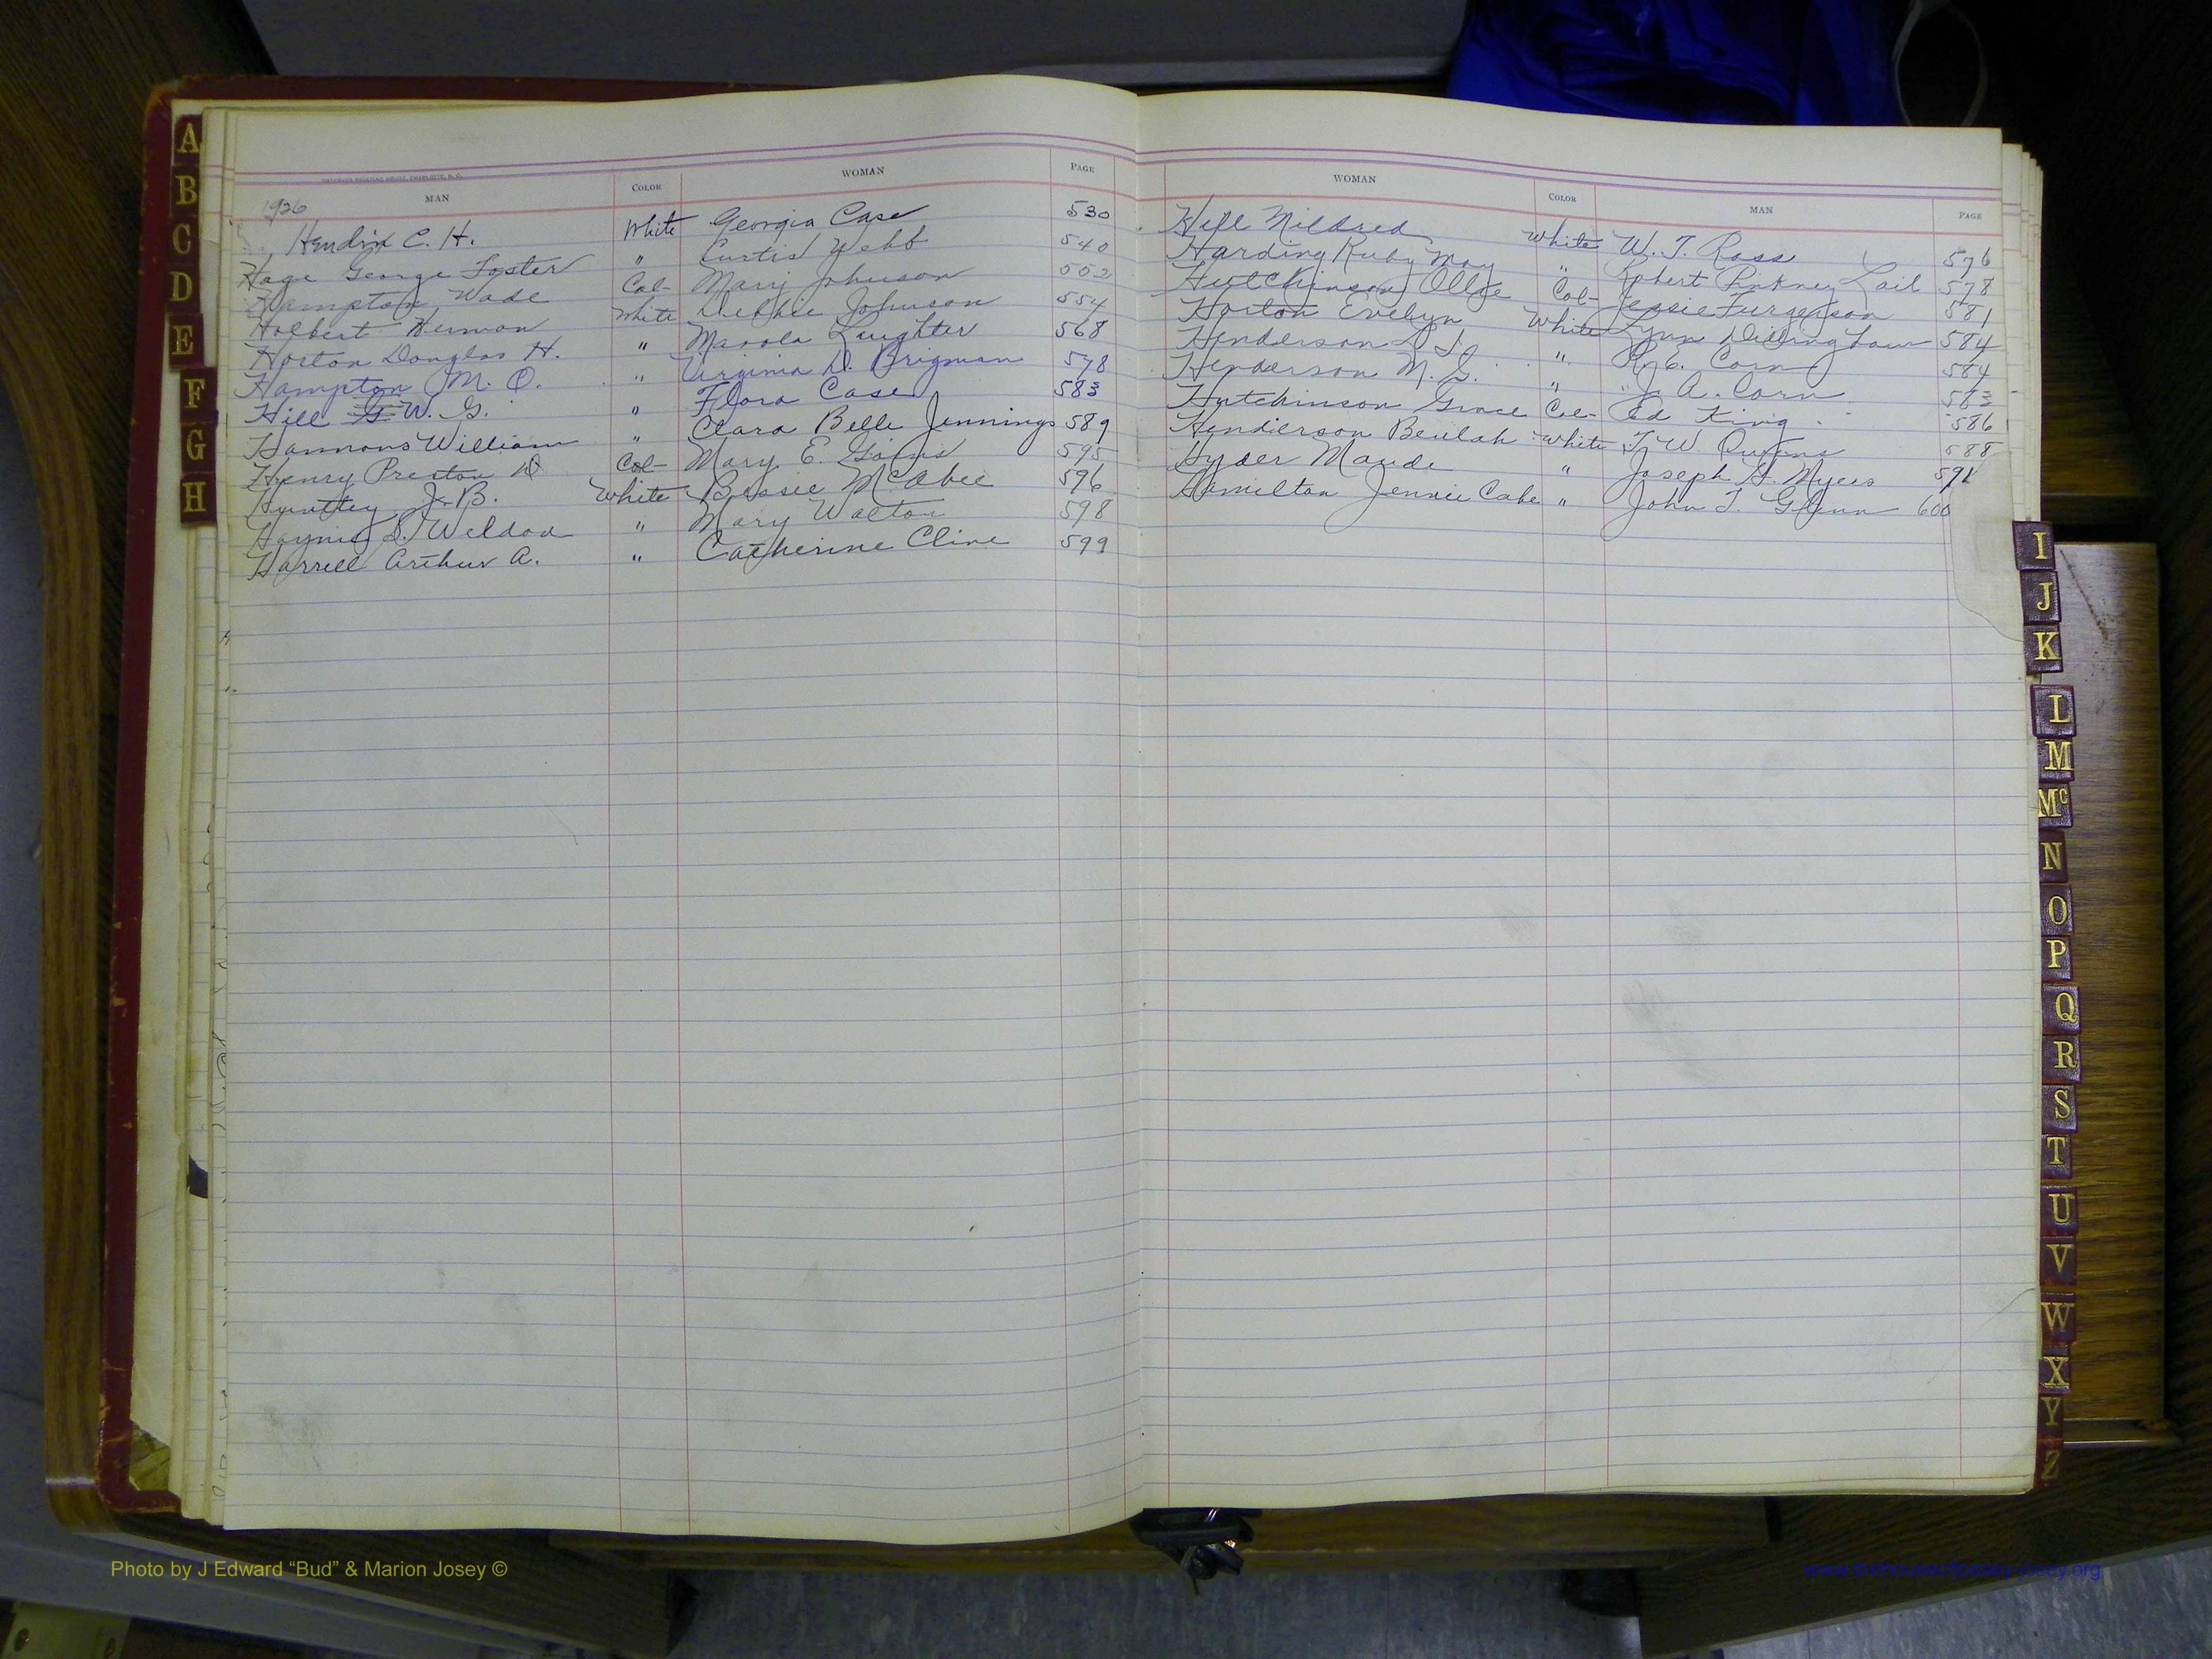 A
B
C
D
E
F
G
H
OBSERVER PRINTING HOUSE, CHARLOTTE, N. C.
MAN COLOR WOMAN PAGE
1926
Hendrix C. H. White Georgia Case 530
Hage George Foster " Curtis Webb 540
Hampton Wade Col- Mary Johnson 552
Holbert Herman White Debbie Johnson 554
Horton Douglas H. " Maxola Laughter 568
Hampton M. O. " Virginia D. Brigman 578
Hill G W. G. " Flora Case 583
Hammons William " Clara Belle Jennings 589
Henry Preston D Col- Mary E. 595
Huntley J. B. White Bessie McAbee 596
Haynie S. Weldon " Mary Walton 598
Harrell Arthur A. " Catherine Cline 599
WOMAN COLOR MAN PAGE
Hill Mildred White W. T. Ross 576
Harding Ruby May " Robert Pinkney Lail 578
Hutchinson Ollie Col- Jessie Furgerson 581
Horton Evelyn White Lynn Dillingham 584
Henderson " R. E. Corn 584
Henderson M. G. " J. A. Corn 583
Hutchinson Grace Col- Ed King 586
Henderson Beulah White T. W. Owens 588
Hyder Maude " Joseph H. Myers 591
Hamilton Jennie Cabe " John T. Glenn 600
I
J
K
L
M
Mc
N
O
P
Q
R
S
T
U
V
W
X
Y
Z
Photo by J Edward “Bud” & Marion Josey ©
www.thehouseofjossey-josey.org